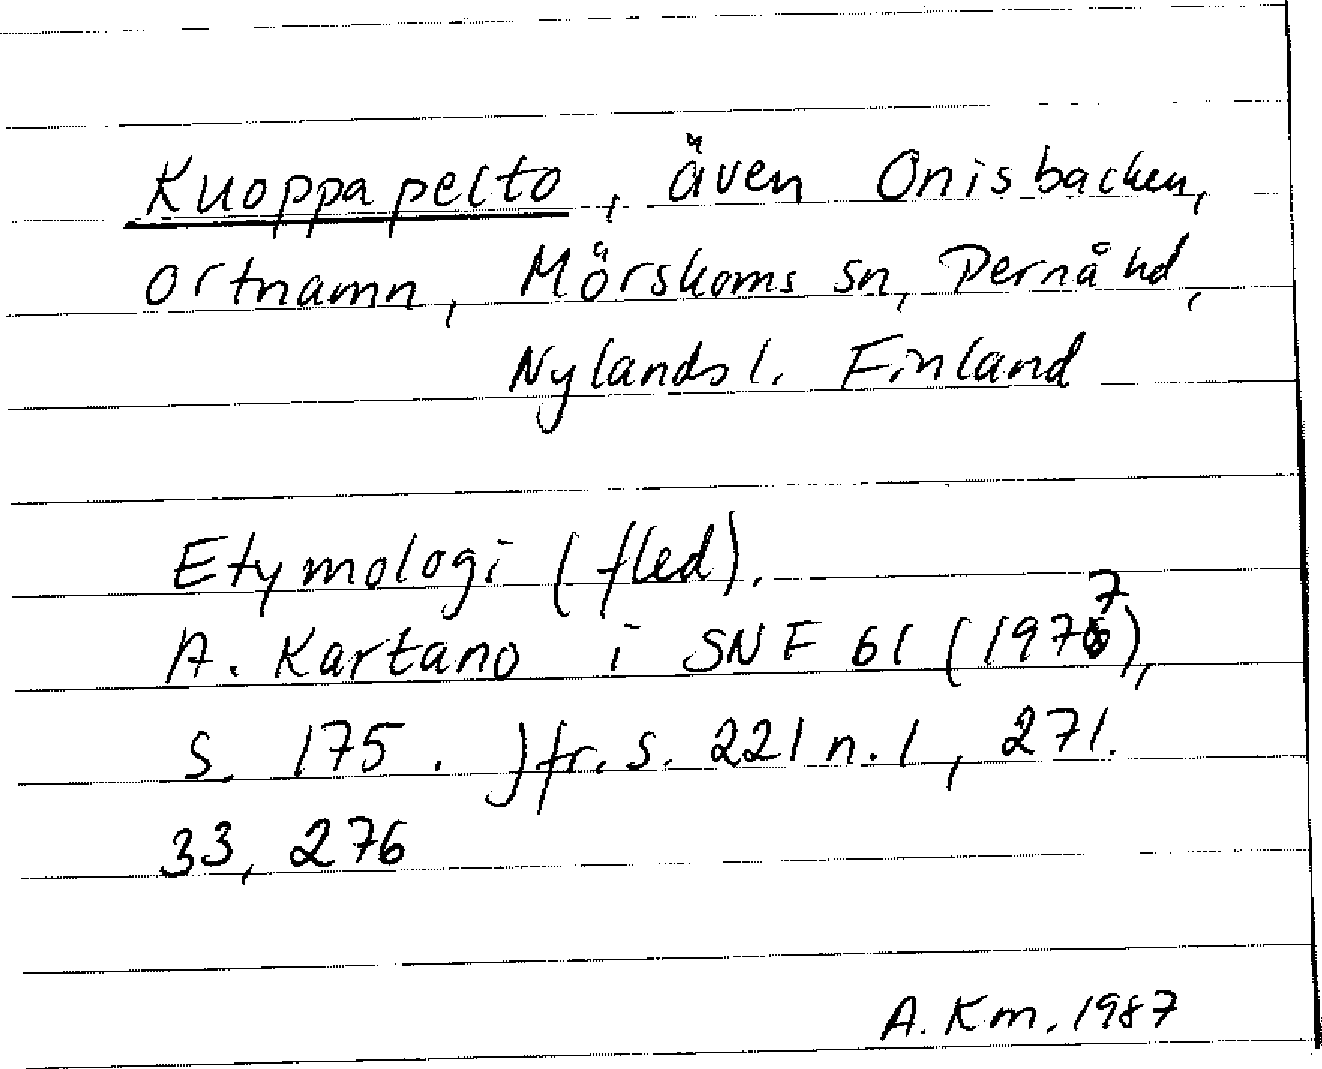 Kuoppapelto, även Onisbacken,
ortnamn, Mörskoms sn, Pernå hd,
Nylands l. Finland
Etymologi (fled).
A. Kartano i SNF 61 (1977),
s. 175. Jfr. s. 221 n. 1, 271.
33, 276
A. Km. 1987